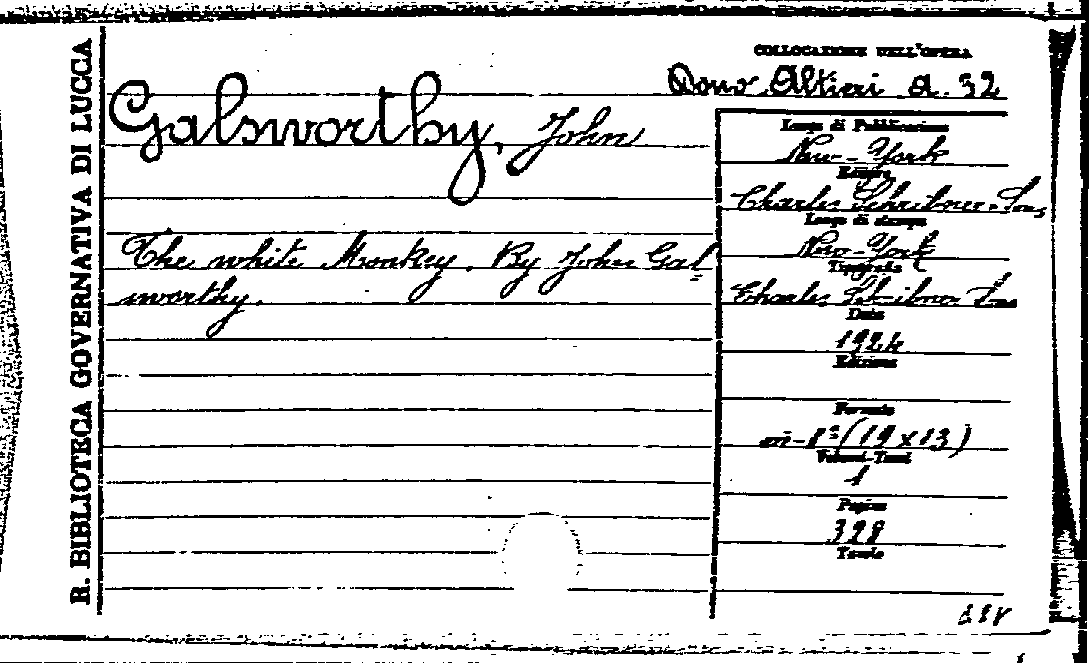 R. BIBLIOTECA GOVERNATIVA DI LUCCA
COLLOCAZIONE DELL'OPERA
Dono Altieri A. 32
Galsworthy, John
The white Monkey. By John Gal=
sworthy.
Luogo di Pubblicazione
New-York
Editore
Charles Schribner. Sons
Luogo di stampa
New-York
Tipografia
Charles Schribner Sons
Data
1924
Edizione
Formato
in-8° (19 x 13)
Volumi-Tomi
1
Pagine
328
Tavole